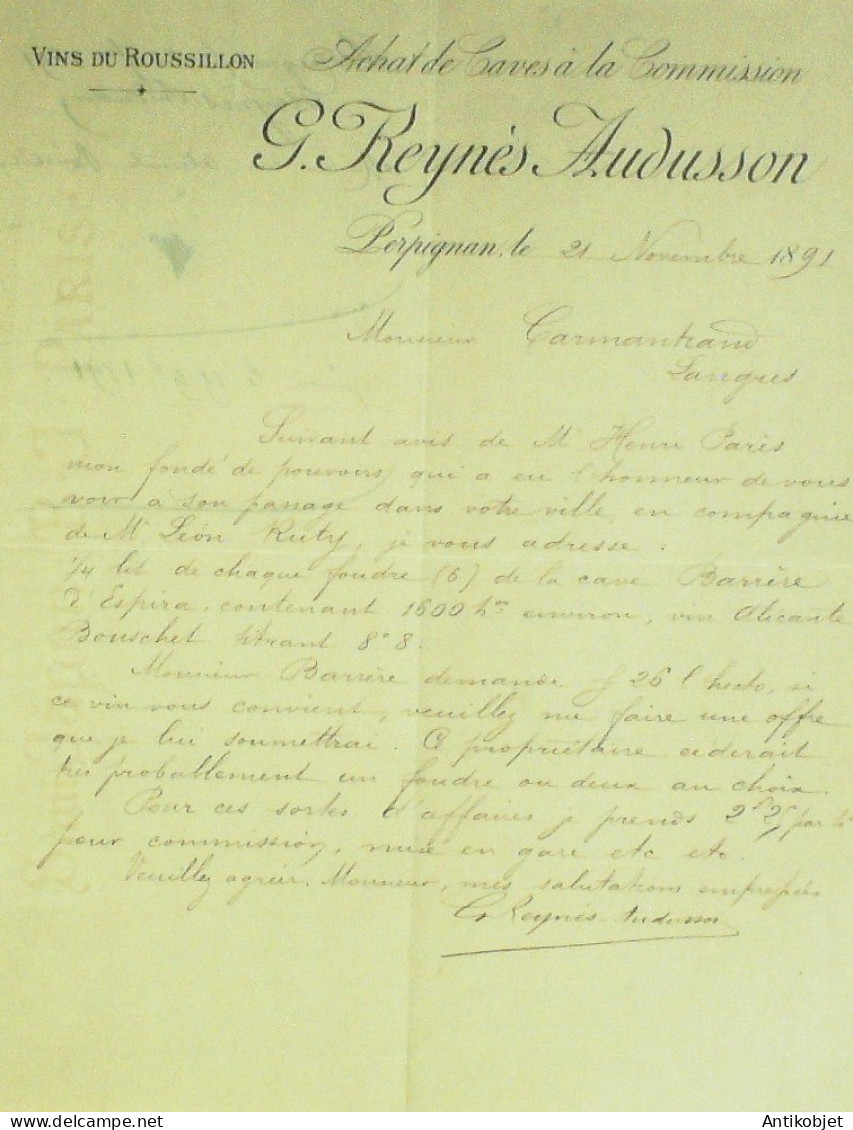 VINS DU ROUSSILLON
Achat de Caves à la Commission
G. Reynés Audusson
Perpignan, le 21 Novembre 1891
Monsieur Carmantrand
Langres
Suivant avis de Mr Henri Parès
mon fondé de pouvoirs, qui a eu l'honneur de vous
voir à son passage dans votre ville, en compagnie
de Mr Léon Ruty, je vous adresse.
1/4 lit de chaque foudre (6) de la cave Barrère
d'Espira, contenant 1600 hos environ, vin Alicante
Bouschet titrant 8°8.
Monsieur Barrère demande f 26 l'hecto, si
ce vin vous convient, veuillez me faire une offre
que je lui soumettrai. Ce propriétaire céderait
très probablement un foudre ou deux au choix.
Pour ces sortes d'affaires je prends 2f25 par ho
pour commission, mise en gare etc etc.
Veuillez agréer, Monsieur, mes salutations empressées
G Reynés-Audusson
Antikobjet